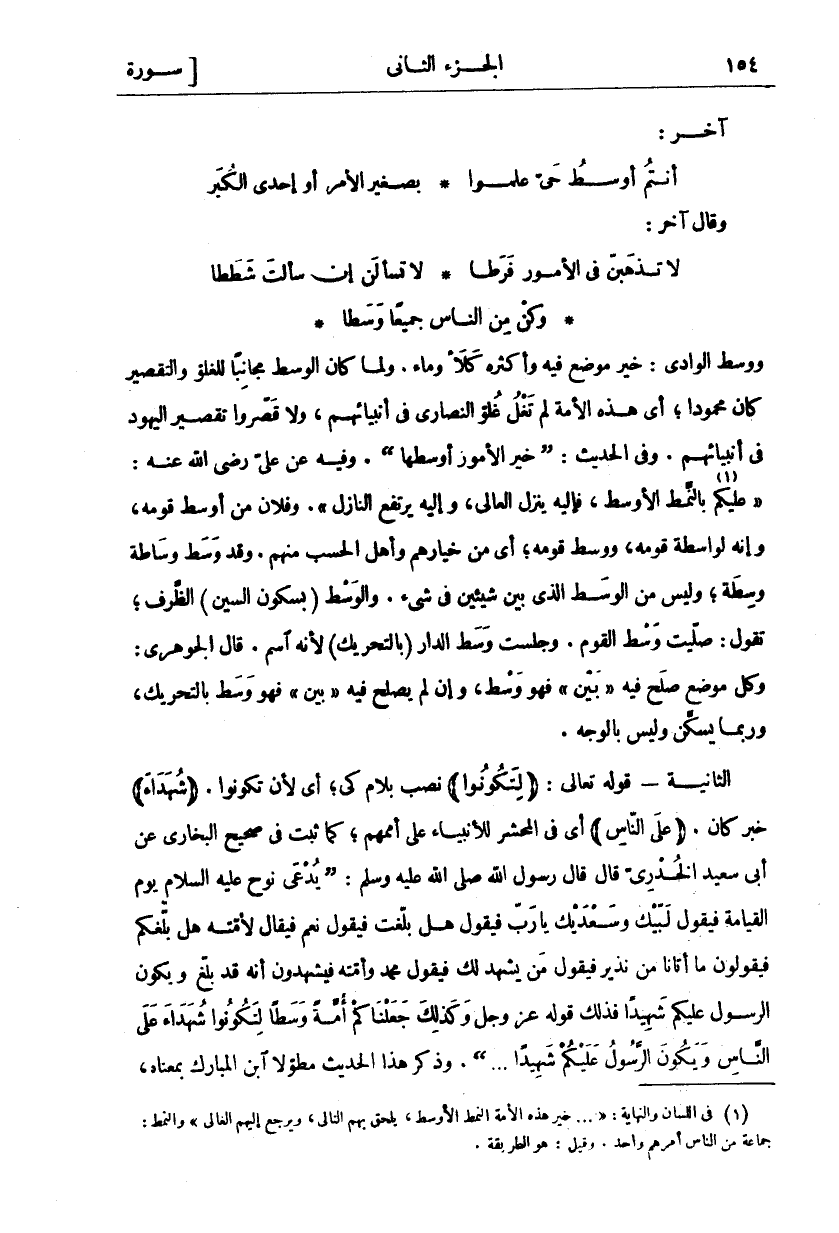 ١٥٤ الجزء الثانى [ سورة
آخر :
أنتمُ أوسطُ حَىّ علموا * بصغير الأمر أو إحدى الكُبَر
وقال آخر :
لا تذهَبنّ فى الأمور فَرَطا * لا تسألَن إن سألتَ شَطَطا
* وكنْ مِن الناس جميعًا وَسَطا *
ووسط الوادى : خير موضع فيه وأكثره كَلَأً وماء . ولما كان الوسط مجانِبًا للغلوّ والتقصير
كان محمودا ؛ أى هذه الأمة لم تَغْلُ غُلوّ النصارى فى أنبيائهم ، ولا قَصّروا تقصير اليهود
فى أنبيائهم . وفى الحديث : ” خير الأموز أوسطها “ . وفيه عن علىّ رضى الله عنه :
« عليكم بالنَّمط (١) الأوسط ، فإليه ينزل العالى، وإليه يرتفع النازل » . وفلان من أوسط قومه،
وإنه لواسطة قومه، ووسط قومه؛ أى من خيارهم وأهل الحسب منهم . وقد وَسَط وسَاطة
وسِطَة ؛ وليس من الوسَط الذى بين شيئين فى شىء . والوَسْط (بسكون السين) الظَّرف ؛
تقول : صلّيت وَسْط القوم . وجلست وَسَط الدار (بالتحريك) لأنه آسم . قال الجوهرى :
وكل موضع صلَح فيه « بَيْن » فهو وَسْط، وإن لم يصلح فيه « بين » فهو وَسَط بالتحريك،
وربما يسكَّن وليس بالوجه .
الثانية — قوله تعالى : ﴿ لِتَكُونُوا ﴾ نصب بلام كى؛ أى لأن تكونوا . ﴿ شُهَدَاءَ ﴾
خبر كان . ﴿ عَلَى النَّاسِ ﴾ أى فى المحشر للأنبياء على أممهم ؛ كما ثبت فى صحيح البخارى عن
أبى سعيد الخُدْرِىّ قال قال رسول الله صلى الله عليه وسلم : ” يُدْعَى نوح عليه السلام يوم
القيامة فيقول لَبّيْك وسَعْدَيْك يا رَبّ فيقول هل بلّغت فيقول نعم فيقال لأمّته هل بلّغكم
فيقولون ما أتانا من نذير فيقول مَن يشهد لك فيقول محمد وأمّته فيشهدون أنه قد بلّغ ويكون
الرسول عليكم شهِيدًا فذلك قوله عز وجل وَكَذلِكَ جَعَلْنَاكمْ أُمَّةً وَسَطًا لِتَكُونُوا شُهَدَاءَ عَلَى
النَّاسِ وَيَكُونَ الرَّسُولُ عَلَيْكُمْ شَهِيدًا ... “ . وذكر هذا الحديث مطوّلا آبن المبارك بمعناه ،
(١) فى اللسان والنهاية : « ... خير هذه الأمة النمط الأوسط ، يلحق بهم التالى ، ويرجع إليهم الغالى » والنمط :
جماعة من الناس أمرهم واحد . وقيل : هو الطريقة .